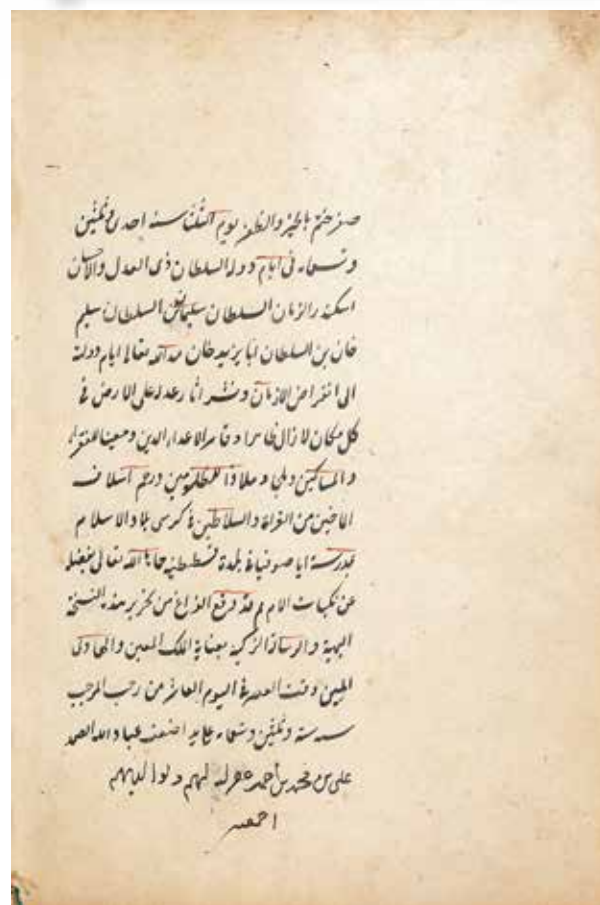 صفر ختم بالخير والظفر يوم الثلثا سنه احدى وثلثين
وتسعماء فى ايام دولة السلطان ذى العدل والاحسان
اسكندر الزمان السلطان سليمان بن السلطان سليم
خان بن السلطان ابا يزيد خان مد الله تعالى ايام دولته
الى انقراض الازمان ونشر اثار عدله على الارض فى
كل مكان لا زال ظاهرا وقاهرا لاعداء الدين ومعينا للفقراء
والمساكين وملاذا للمظلومين ورحم اسلاف
الماضين من الغزاة والسلاطين فى كرسى بلاد الاسلام
مدرسة ايا صوفيا بلدة قسطنطنيه حماها الله تعالى بفضله
عن نكبات الايام قد وقع الفراغ من تحرير هذه النسخة
البهية والرسالة الزكية بعناية الملك المعين والهادى
المبين وقت العصر فى اليوم العاشر من رجب المرجب
سنه ستة وثلثين وتسعماء على يد اضعف عباد الله الصمد
على بن محمد بن احمد غفر له لهم ولوالديهم
اجمعين